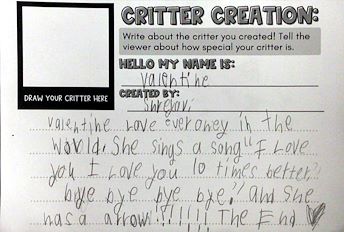 CRITTER CREATION:
Write about the critter you created! Tell the
viewer about how special your critter is.
HELLO MY NAME IS:
valentine
CREATED BY:
DRAW YOUR CRITTER HERE
valentine Love everoney in the
world. She sings a song "I Love
you I Love you 10 times better"!
bye bye bye bye! and she
has a arrow!!!!!!! The End